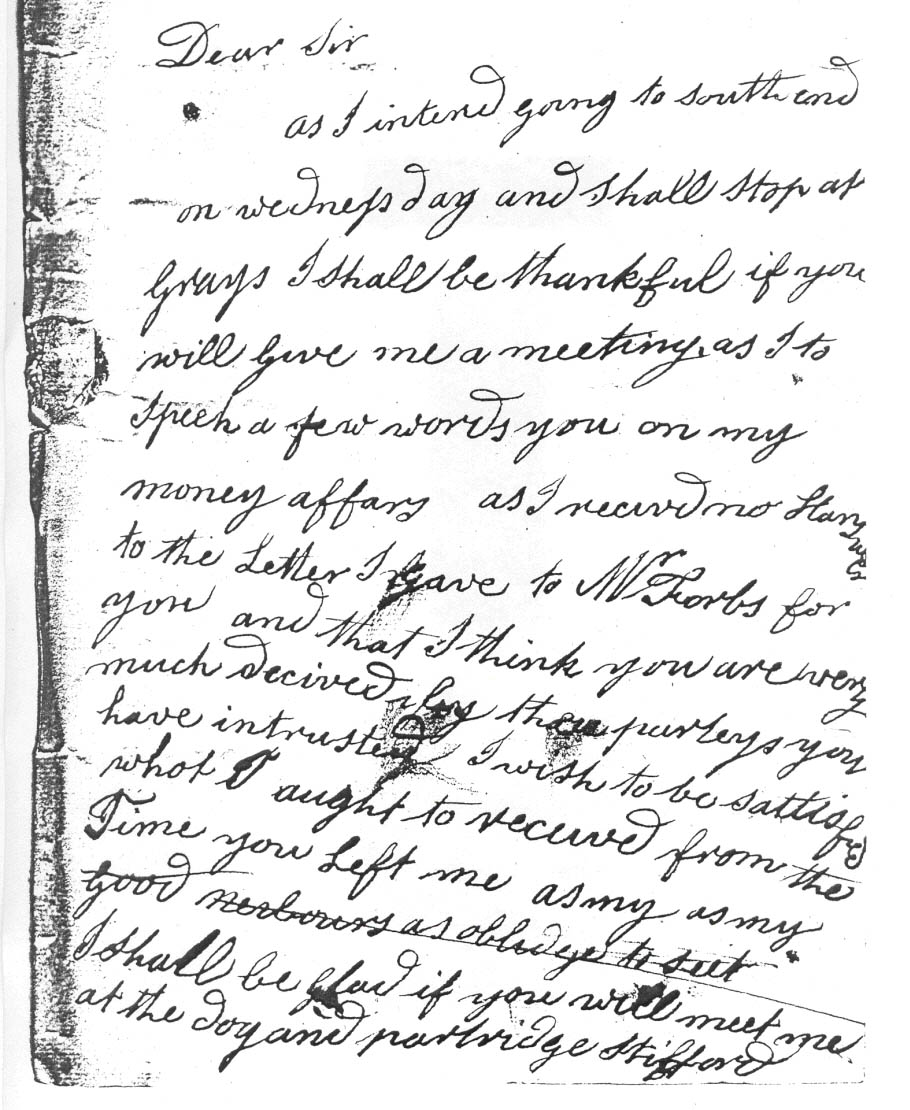 Dear Sir
as I intend going to south end
on wednesday and shall stop at
Grays I shall be thankful if you
will Give me a meeting as I to
speek a few words you on my
money affars as I recivd no Hanswer
to the Letter I gave to Mr Forbs for
you and that I think you are very
much decived by the parteys you
have intrusted I wish to be sattisfied
whot I aught to received from the
Time you Left me as my as my
good neibours as oblidge to seet
I shall be glad if you will meet me
at the dog and partridge Stifford